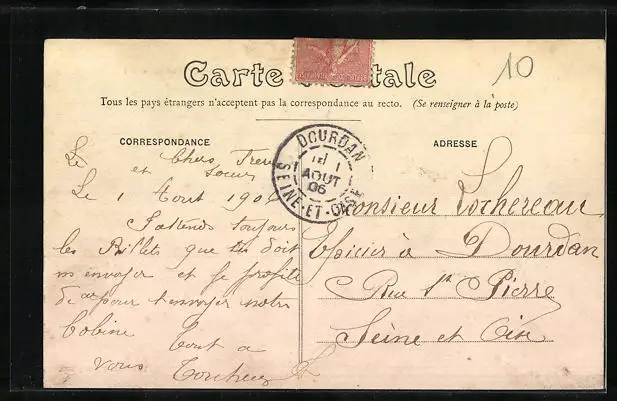 Carte Postale
10
Tous les pays étrangers n'acceptent pas la correspondance au recto. (Se renseigner à la poste)
CORRESPONDANCE
ADRESSE
DOURDAN
1
AOUT
06
SEINE-ET-OISE
Le
Chers Frere
et soeur
Le 1 Aout 1906
J'attends toujours
les Billets que tu doit
m envoyer et je profite
de pour t envoyer notre
bobine tout a
vous
Monsieur Lochereau
Epicier à Dourdan
Rue St Pierre
Seine et Oise